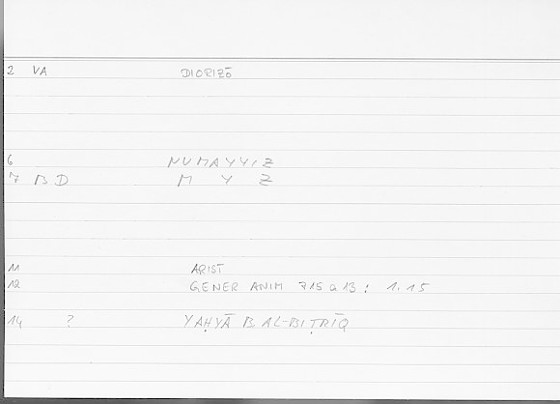 2 VA DIORIZŌ
6 NUMAYYIZ
7 BD M Y Z
11 ARIST
12 GENER ANIM 715 a 13 : 1.15
14 ? YAḤYĀ B. AL-BIṬRĪQ